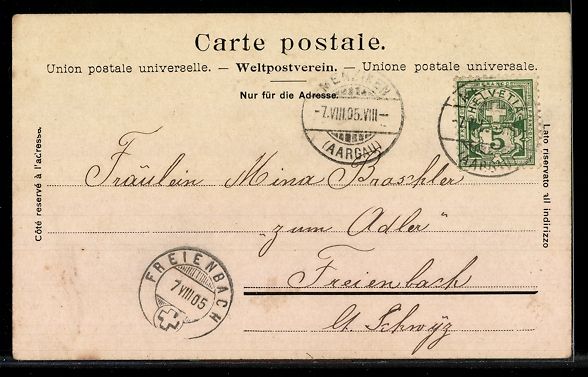 Carte postale.
Union postale universelle. — Weltpostverein. — Unione postale universale.
Nur für die Adresse.
MENZIKEN
-7.VIII.05.VIII-
(AARGAU)
HELVETIA
5
Côté reservé à l'adresse.
Lato riservato all indirizzo
Fräulein Mina Braschler
„zum Adler"
Freienbach
Ct. Schwyz
FREIENBACH
7 VIII 05